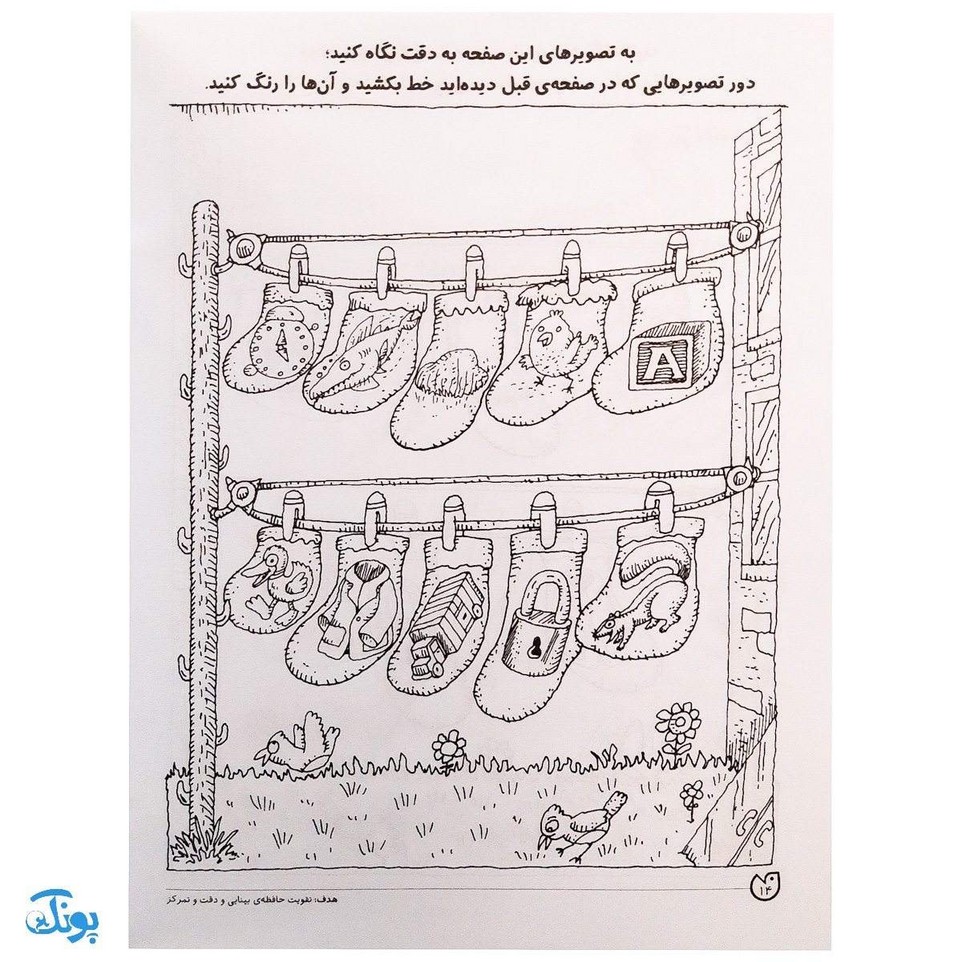 به تصویرهای این صفحه به دقت نگاه کنید؛
دور تصویرهایی که در صفحه‌ی قبل دیده‌اید خط بکشید و آن‌ها را رنگ کنید.
A
۱۴
هدف: تقویت حافظه‌ی بینایی و دقت و تمرکز
پونک